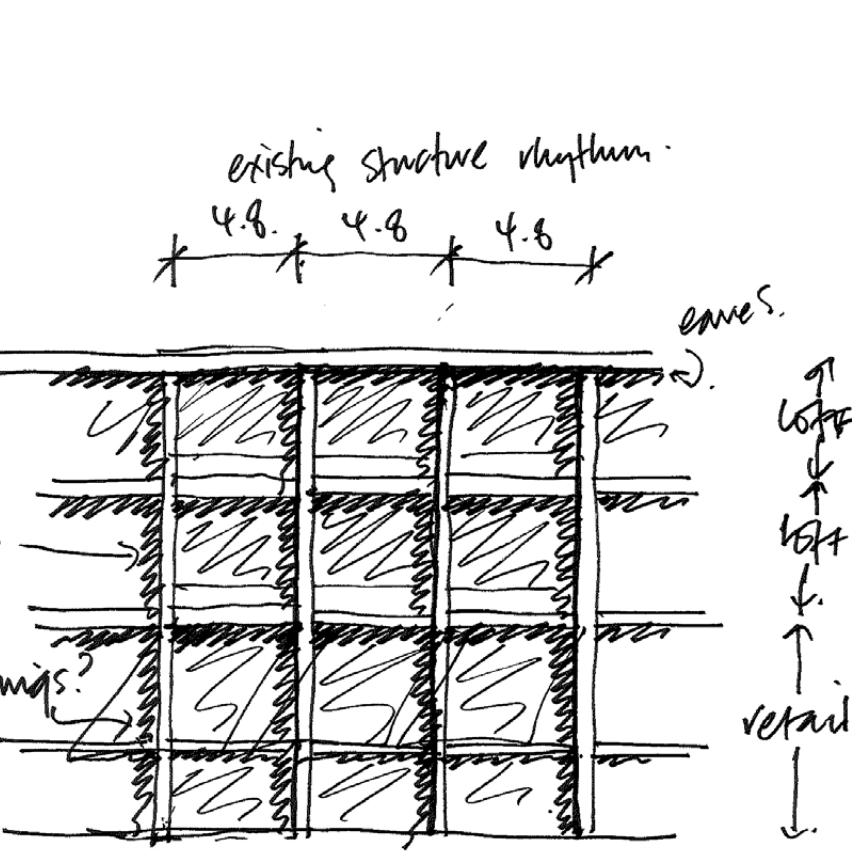 existing structure rhythm.
4.8. 4.8 4.8
eaves.
loft
loft
retail